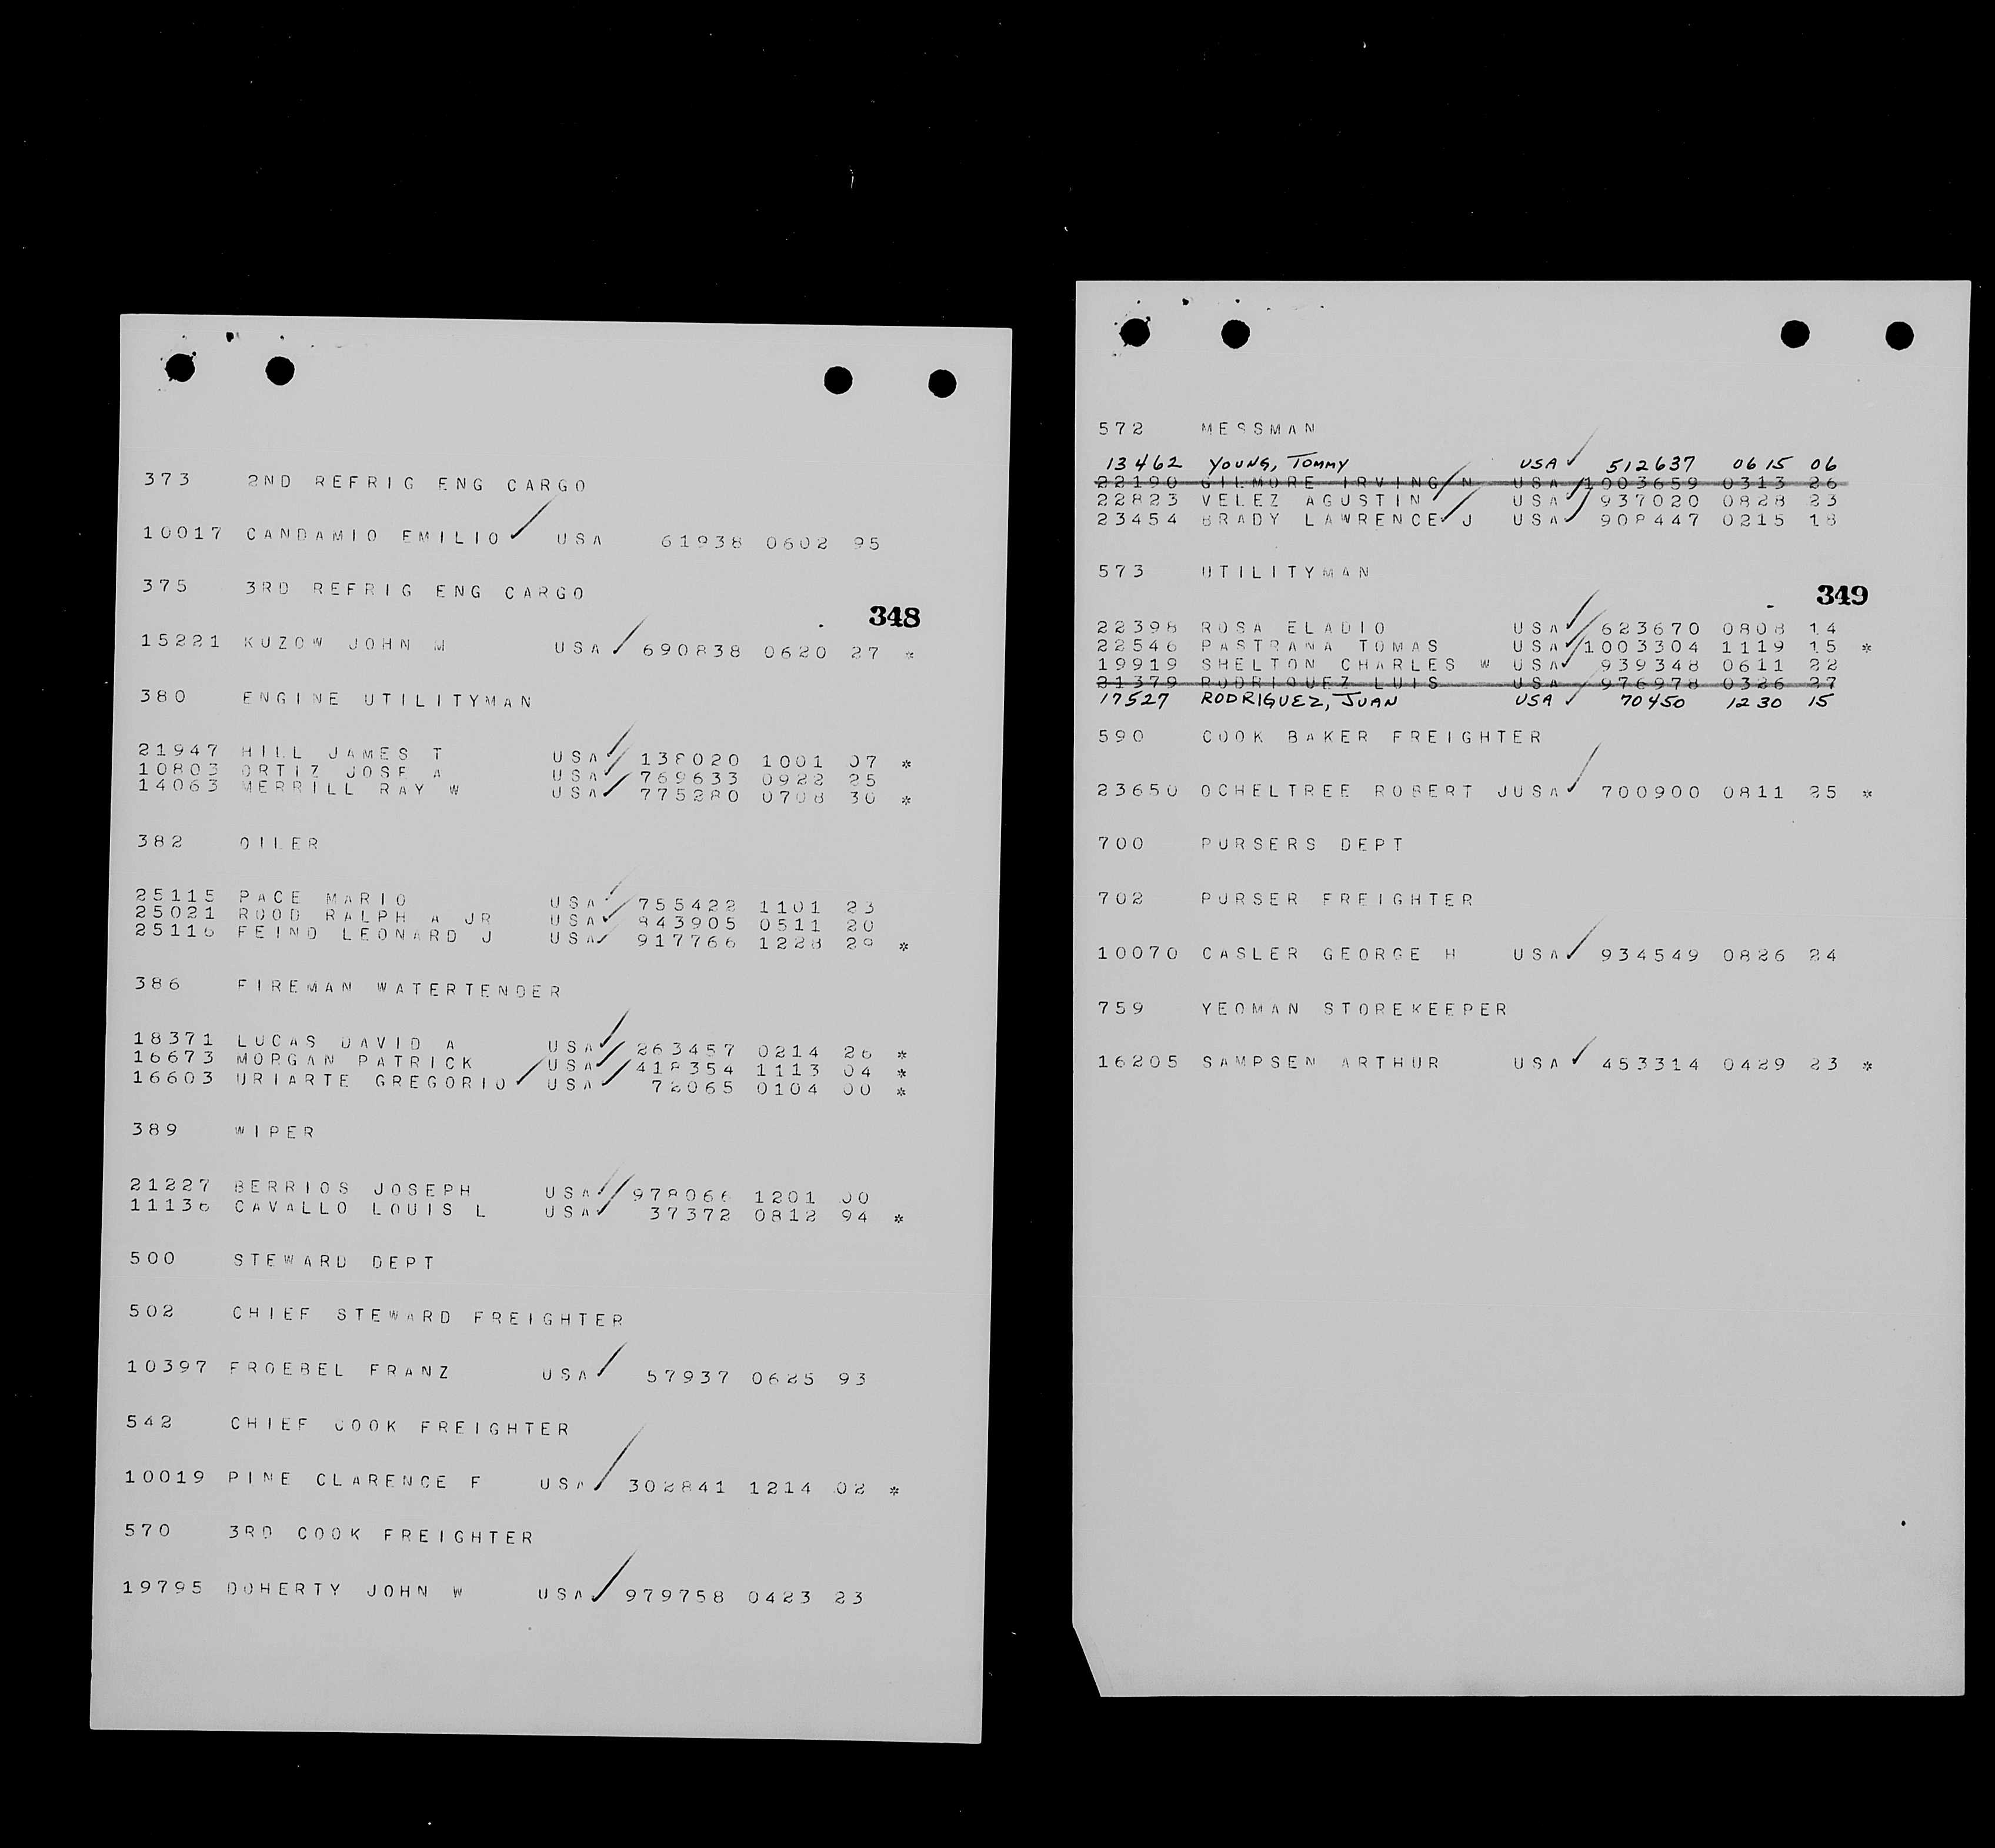 373 2ND REFRIG ENG CARGO
10017 CANDAMIO EMILIO USA 61938 0602 95
375 3RD REFRIG ENG CARGO
348
15221 KUZOW JOHN M USA 690838 0620 27 *
380 ENGINE UTILITYMAN
21947 HILL JAMES T USA 138020 1001 07 *
10803 ORTIZ JOSE A USA 769633 0922 25
14063 MERRILL RAY W USA 775280 0708 30 *
382 OILER
25115 PACE MARIO USA 755422 1101 23
25021 ROOD RALPH A JR USA 843905 0511 20
25116 FEIND LEONARD J USA 917766 1228 29 *
386 FIREMAN WATERTENDER
18371 LUCAS DAVID A USA 263457 0214 26 *
16673 MORGAN PATRICK USA 418354 1113 04 *
16603 URIARTE GREGORIO USA 72065 0104 00 *
389 WIPER
21227 BERRIOS JOSEPH USA 978066 1201 00
11136 CAVALLO LOUIS L USA 37372 0812 94 *
500 STEWARD DEPT
502 CHIEF STEWARD FREIGHTER
10397 FROEBEL FRANZ USA 57937 0625 93
542 CHIEF COOK FREIGHTER
10019 PINE CLARENCE F USA 302841 1214 02 *
570 3RD COOK FREIGHTER
19795 DOHERTY JOHN W USA 979758 0423 23
572 MESSMAN
13462 YOUNG, TOMMY USA 512637 0615 06
22190 GILMORE IRVING N USA 1003659 0313 26
22823 VELEZ AGUSTIN USA 937020 0828 23
23454 BRADY LAWRENCE J USA 908447 0215 18
573 UTILITYMAN
349
22398 ROSA ELADIO USA 623670 0808 14
22546 PASTRANA TOMAS USA 1003304 1119 15 *
19919 SHELTON CHARLES W USA 939348 0611 22
21379 RODRIQUEZ LUIS USA 976978 0326 27
17527 RODRIGUEZ, JUAN USA 70450 1230 15
590 COOK BAKER FREIGHTER
23650 OCHELTREE ROBERT JUSA 700900 0811 25 *
700 PURSERS DEPT
702 PURSER FREIGHTER
10070 CASLER GEORGE H USA 934549 0826 24
759 YEOMAN STOREKEEPER
16205 SAMPSEN ARTHUR USA 453314 0429 23 *